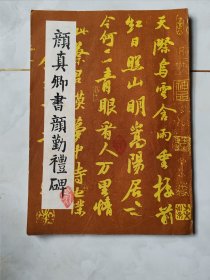 天際烏雲含雨重樓前
紅日照山明嵩陽居士
今何在青眼看人萬里情
此蔡君謨夢中詩也僕
顏真卿書顏勤禮碑